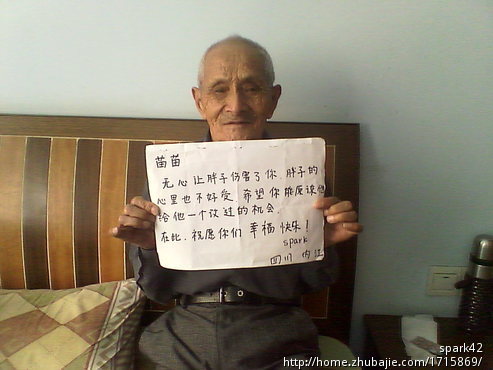 苗苗
无心让胖子伤害了你 胖子的
心里也不好受.希望你能原谅他
给他一个改过的机会.
在此.祝愿你们幸福快乐!
spark
四川 内江
spark42
http://home.zhubajie.com/1715869/